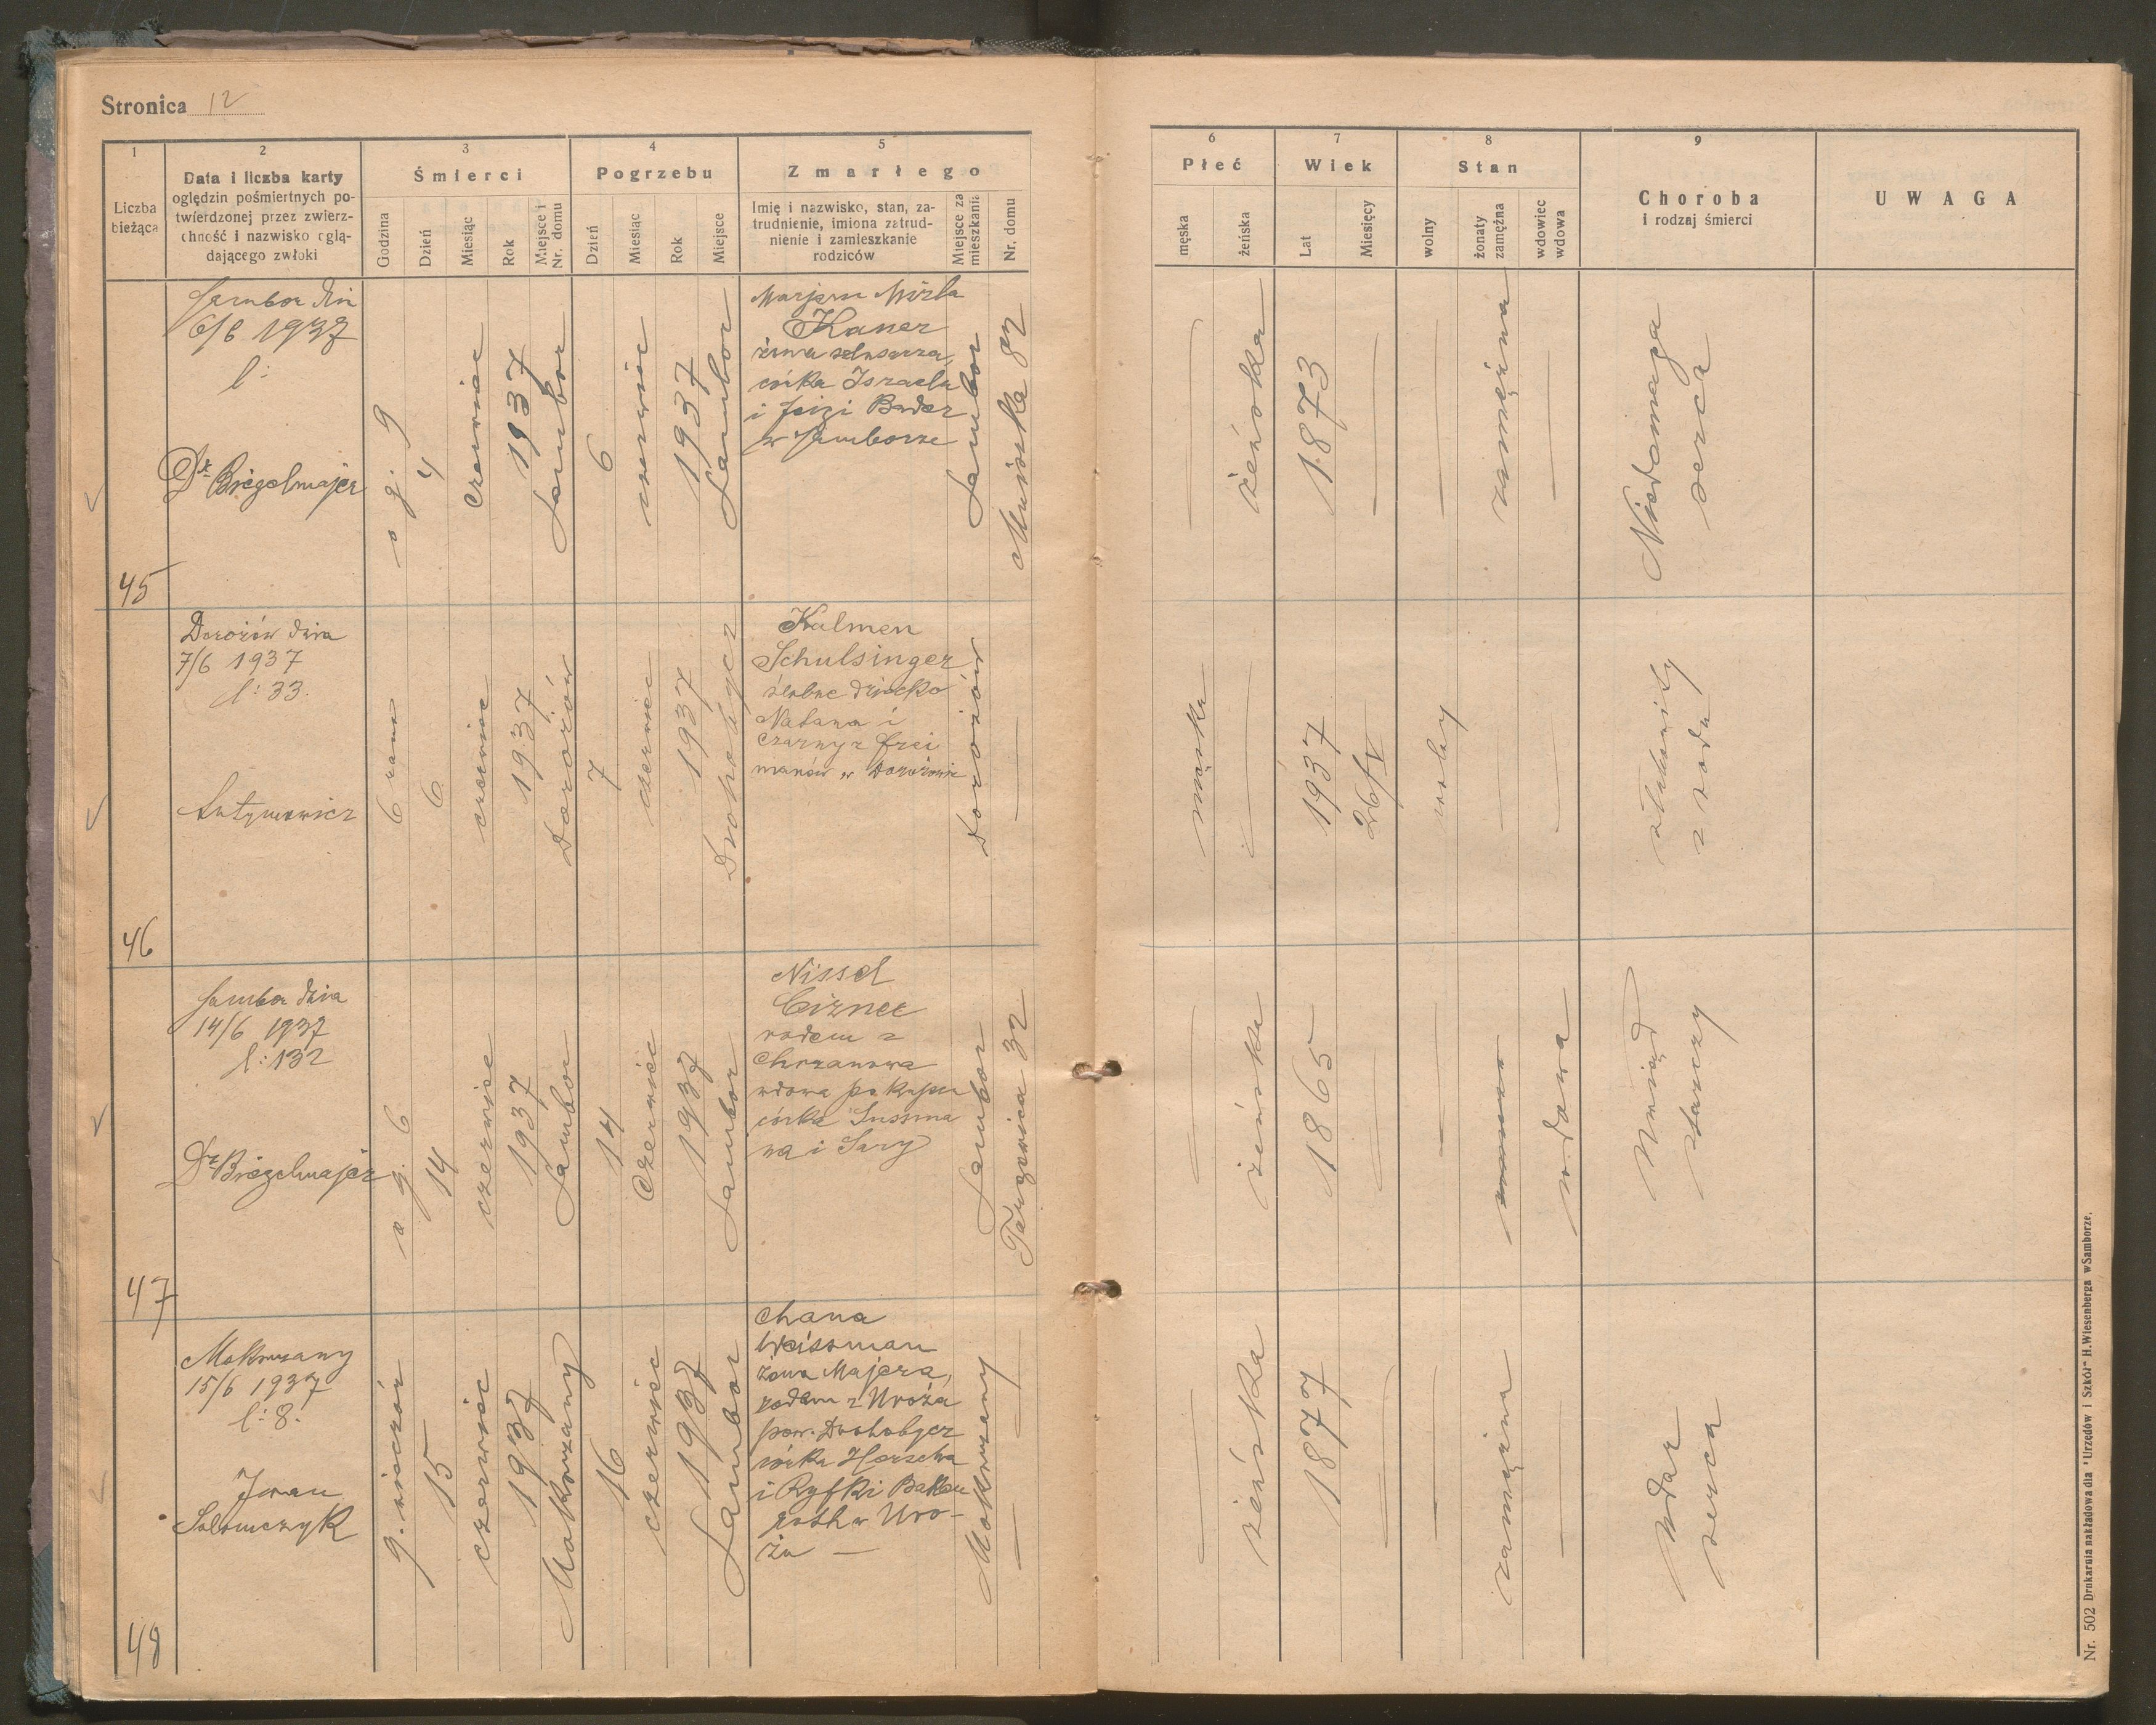 Stronica 12
1
Liczba
bieżąca
2
Data i liczba karty
oględzin pośmiertnych po-
twierdzonej przez zwierz-
chność i nazwisko oglą-
dającego zwłoki
3
Śmierci
Godzina
Dzień
Miesiąc
Rok
Miejsce i
Nr. domu
4
Pogrzebu
Dzień
Miesiąc
Rok
Miejsce
5
Zmarłego
Imię i nazwisko, stan, za-
trudnienie, imiona zatrud-
nienie i zamieszkanie
rodziców
Miejsce za
mieszkania
Nr. domu
6
Płeć
męska
żeńska
7
Wiek
Lat
Miesięcy
8
Stan
wolny
żonaty
zamężna
wdowiec
wdowa
9
Choroba
i rodzaj śmierci
UWAGA
45
Sambor
6/6 1937
l:
Dr Briegelmajer
o g. 9
4
czerwiec
1937
Sambor
6
czerwiec
1937
Sambor
Marjem Mirla
Kaner
żona ślusarza,
córka Israela
i Feigi Bader
w Samborze
Sambor
82
żeńska
1873
zamężna
Niedomaga
serca
46
Dorożów dnia
7/6 1937
l: 33.
Antymowicz
6 rano
6
czerwiec
1937
Dorożów
7
czerwiec
1937
Drohobycz
Kalmen
Schulsinger
ślubne dziecko
Natana i
Czarny z Frei
manów w Dorożowie
Dorożów
męska
1937
26/V
wolny
z rodu
47
Sambor dnia
14/6 1937
l: 132
Dr Briegelmajer
o g. 6
14
czerwiec
1937
Sambor
14
Czerwiec
1937
Sambor
Nissel
rodem z
Chrzanowa
wdowa po kupcu
córka Sussma
na i Sary
Sambor
Targowica 32
żeńska
1865
wdowa
Uwiąd
starczy
48
Mokrzany
15/6 1937
l: 8.
Iwan
g. wieczór
15
czerwiec
1937
Mokrzany
16
czerwiec
1937
Sambor
Chana
Weissman
żona Majera,
rodem z Uroża
pow. Drohobycz
córka Herscha
i Ryfki Baken
roth w Uro-
żu —
Mokrzany
żeńska
1877
zamężna
udar
serca
Nr. 502 Drukarnia nakładowa dla "Urzędów i Szkół" H. Wiesenberga w Samborze.